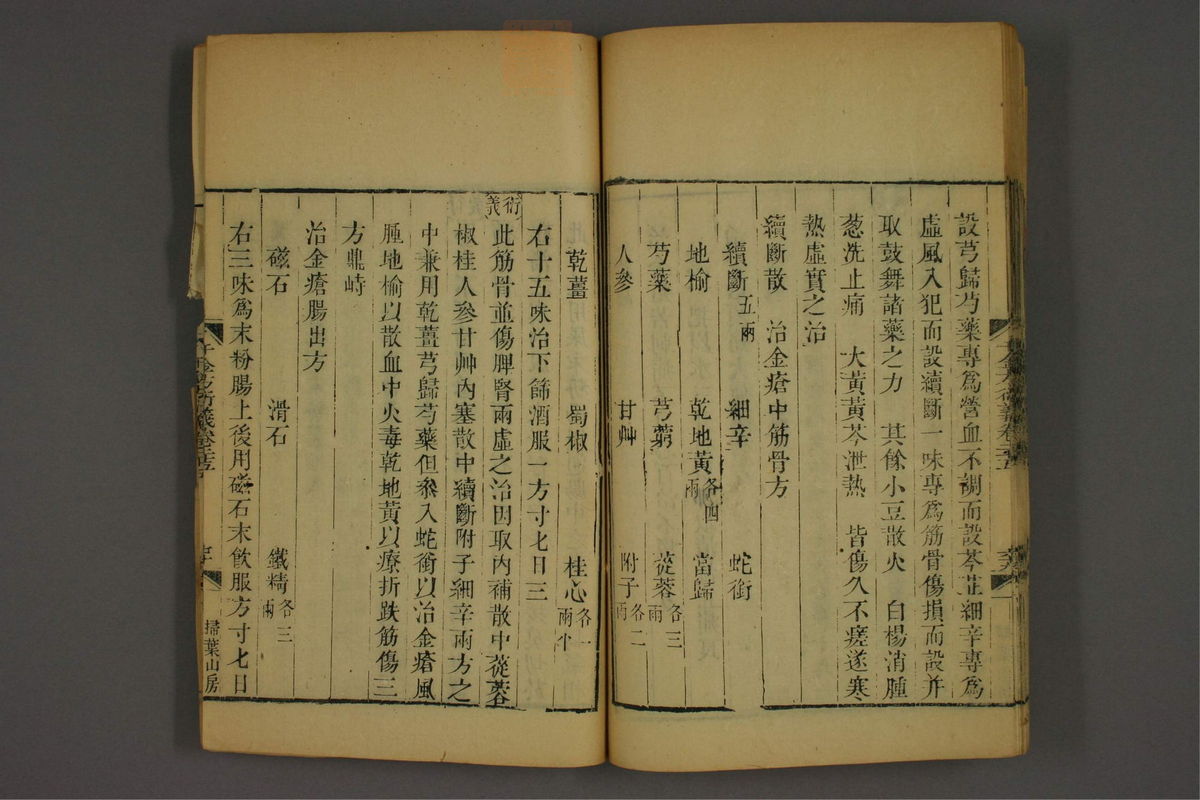 設芎歸芍藥專爲營血不調而設芩芷細辛專爲
虛風入犯而設續斷一味專爲筋骨傷損而設并
取鼓舞諸藥之力 其餘小豆散火 白楊消腫
葱洗止痛 大黃黃芩泄熱 皆傷久不瘥遂寒
熱虛實之治
續斷散 治金瘡中筋骨方
續斷五兩 細辛 蛇銜
地榆 乾地黃各四兩 當歸
芍藥 芎藭 蓯蓉各三兩
人參 甘艸 附子各二兩
乾薑 蜀椒 桂心各一兩半
右十五味治下篩酒服一方寸匕日三
衍義
此筋骨並傷脾腎兩虛之治因取內補散中蓯蓉
椒桂人參甘艸內塞散中續斷附子細辛兩方之
中兼用乾薑芎歸芍藥但叅入蛇銜以治金瘡風
腫地榆以散血中火毒乾地黃以療折跌筋傷三
方鼎峙
治金瘡腸出方
磁石 滑石 鐵精各三兩
右三味爲末粉腸上後用磁石末飮服方寸匕日
千金方衍義卷二十五
掃葉山房